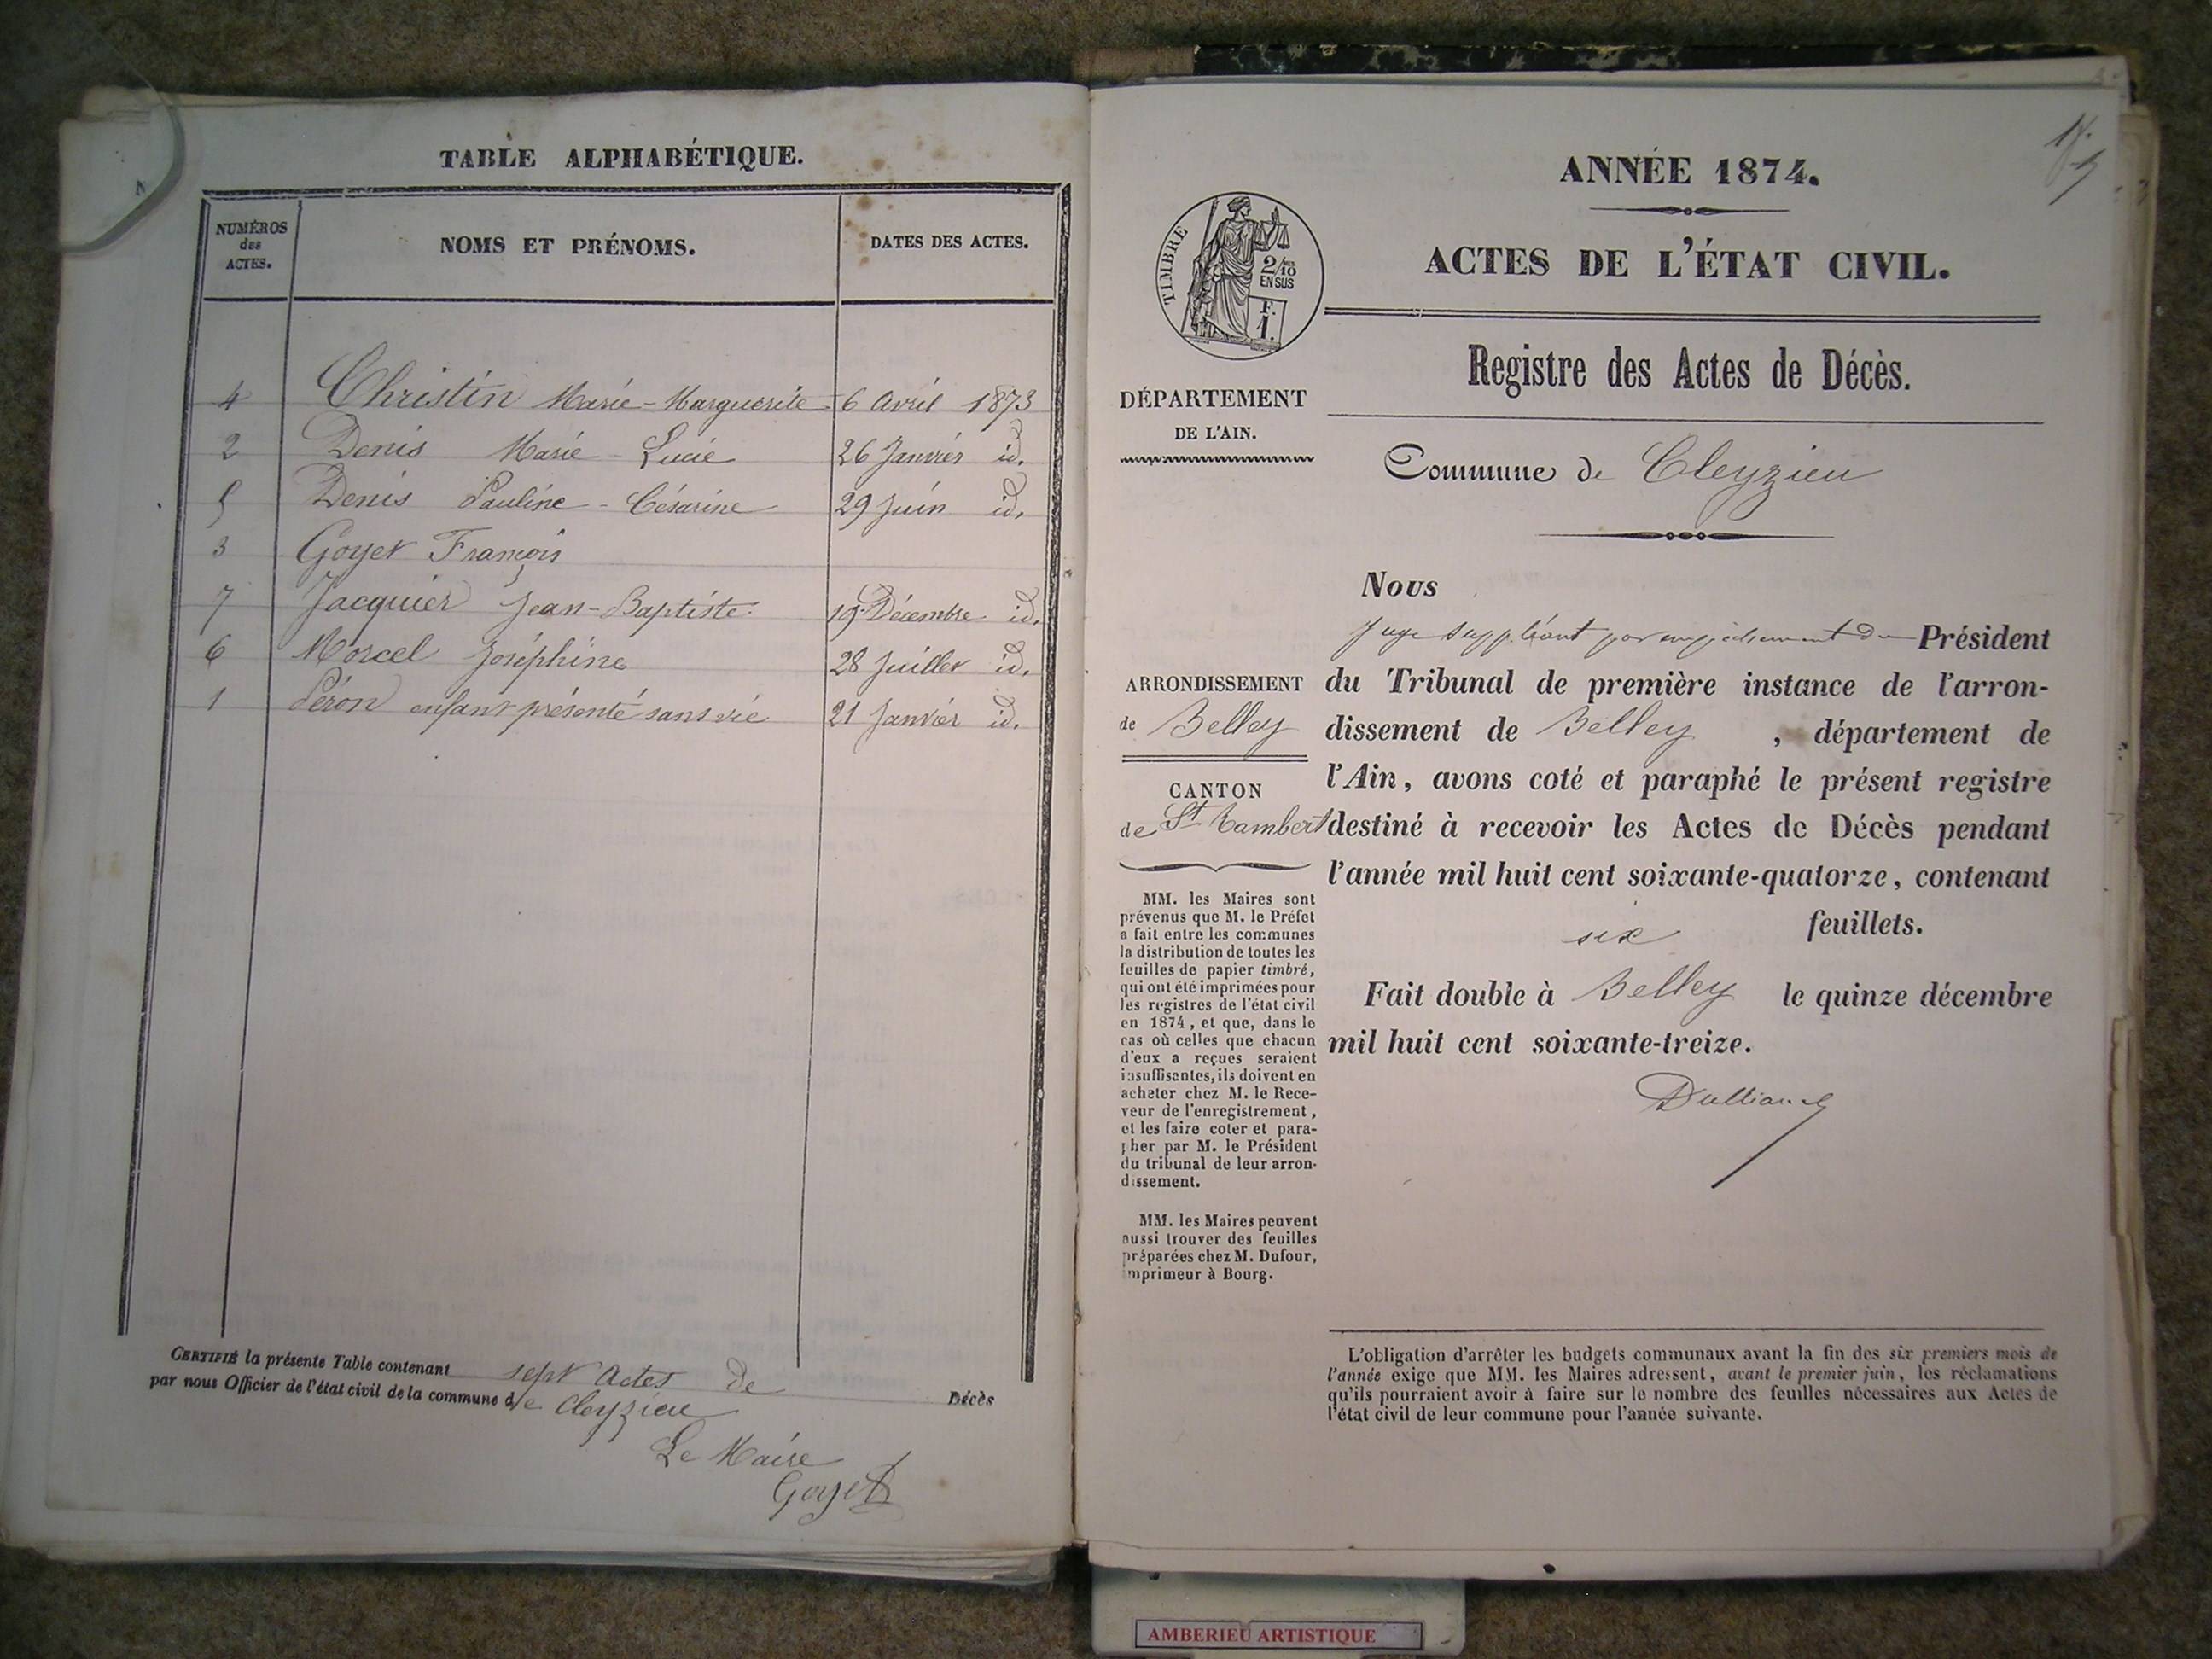 TABLE ALPHABÉTIQUE.
NUMÉROS
des
ACTES.
NOMS ET PRÉNOMS.
DATES DES ACTES.
4 Christin Marie-Marguerite 6 Avril 1873
2 Denis Marie-Lucie 26 Janvier id.
5 Denis Pauline-Césarine 29 Juin id.
3 Goyet François
7 Jacquier Jean-Baptiste 19 Décembre id.
6 Morcel Joséphine 28 Juillet id.
1 Péron enfant présenté sans vie 21 Janvier id.
CERTIFIÉ la présente Table contenant sept Actes de Décès
par nous Officier de l'état civil de la commune de Cleyzieu
Le Maire
Goyet
ANNÉE 1874.
ACTES DE L'ÉTAT CIVIL.
TIMBRE
2/10
EN SUS
F.
1.
Registre des Actes de Décès.
DÉPARTEMENT
DE L'AIN.
Commune de Cleyzieu
Nous
Juge suppléant par empêchement du Président
du Tribunal de première instance de l'arron-
dissement de Belley, département de
l'Ain, avons coté et paraphé le présent registre
destiné à recevoir les Actes de Décès pendant
l'année mil huit cent soixante-quatorze, contenant
six feuillets.
Fait double à Belley le quinze décembre
mil huit cent soixante-treize.
ARRONDISSEMENT
de Belley
CANTON
de St Rambert
MM. les Maires sont
prévenus que M. le Préfet
a fait entre les communes
la distribution de toutes les
feuilles de papier timbré,
qui ont été imprimées pour
les registres de l'état civil
en 1874, et que, dans le
cas où celles que chacun
d'eux a reçues seraient
insuffisantes, ils doivent en
acheter chez M. le Rece-
veur de l'enregistrement,
et les faire coter et para-
pher par M. le Président
du tribunal de leur arron-
dissement.
MM. les Maires peuvent
aussi trouver des feuilles
préparées chez M. Dufour,
imprimeur à Bourg.
L'obligation d'arrêter les budgets communaux avant la fin des six premiers mois de
l'année exige que MM. les Maires adressent, avant le premier juin, les réclamations
qu'ils pourraient avoir à faire sur le nombre des feuilles nécessaires aux Actes de
l'état civil de leur commune pour l'année suivante.
AMBERIEU ARTISTIQUE